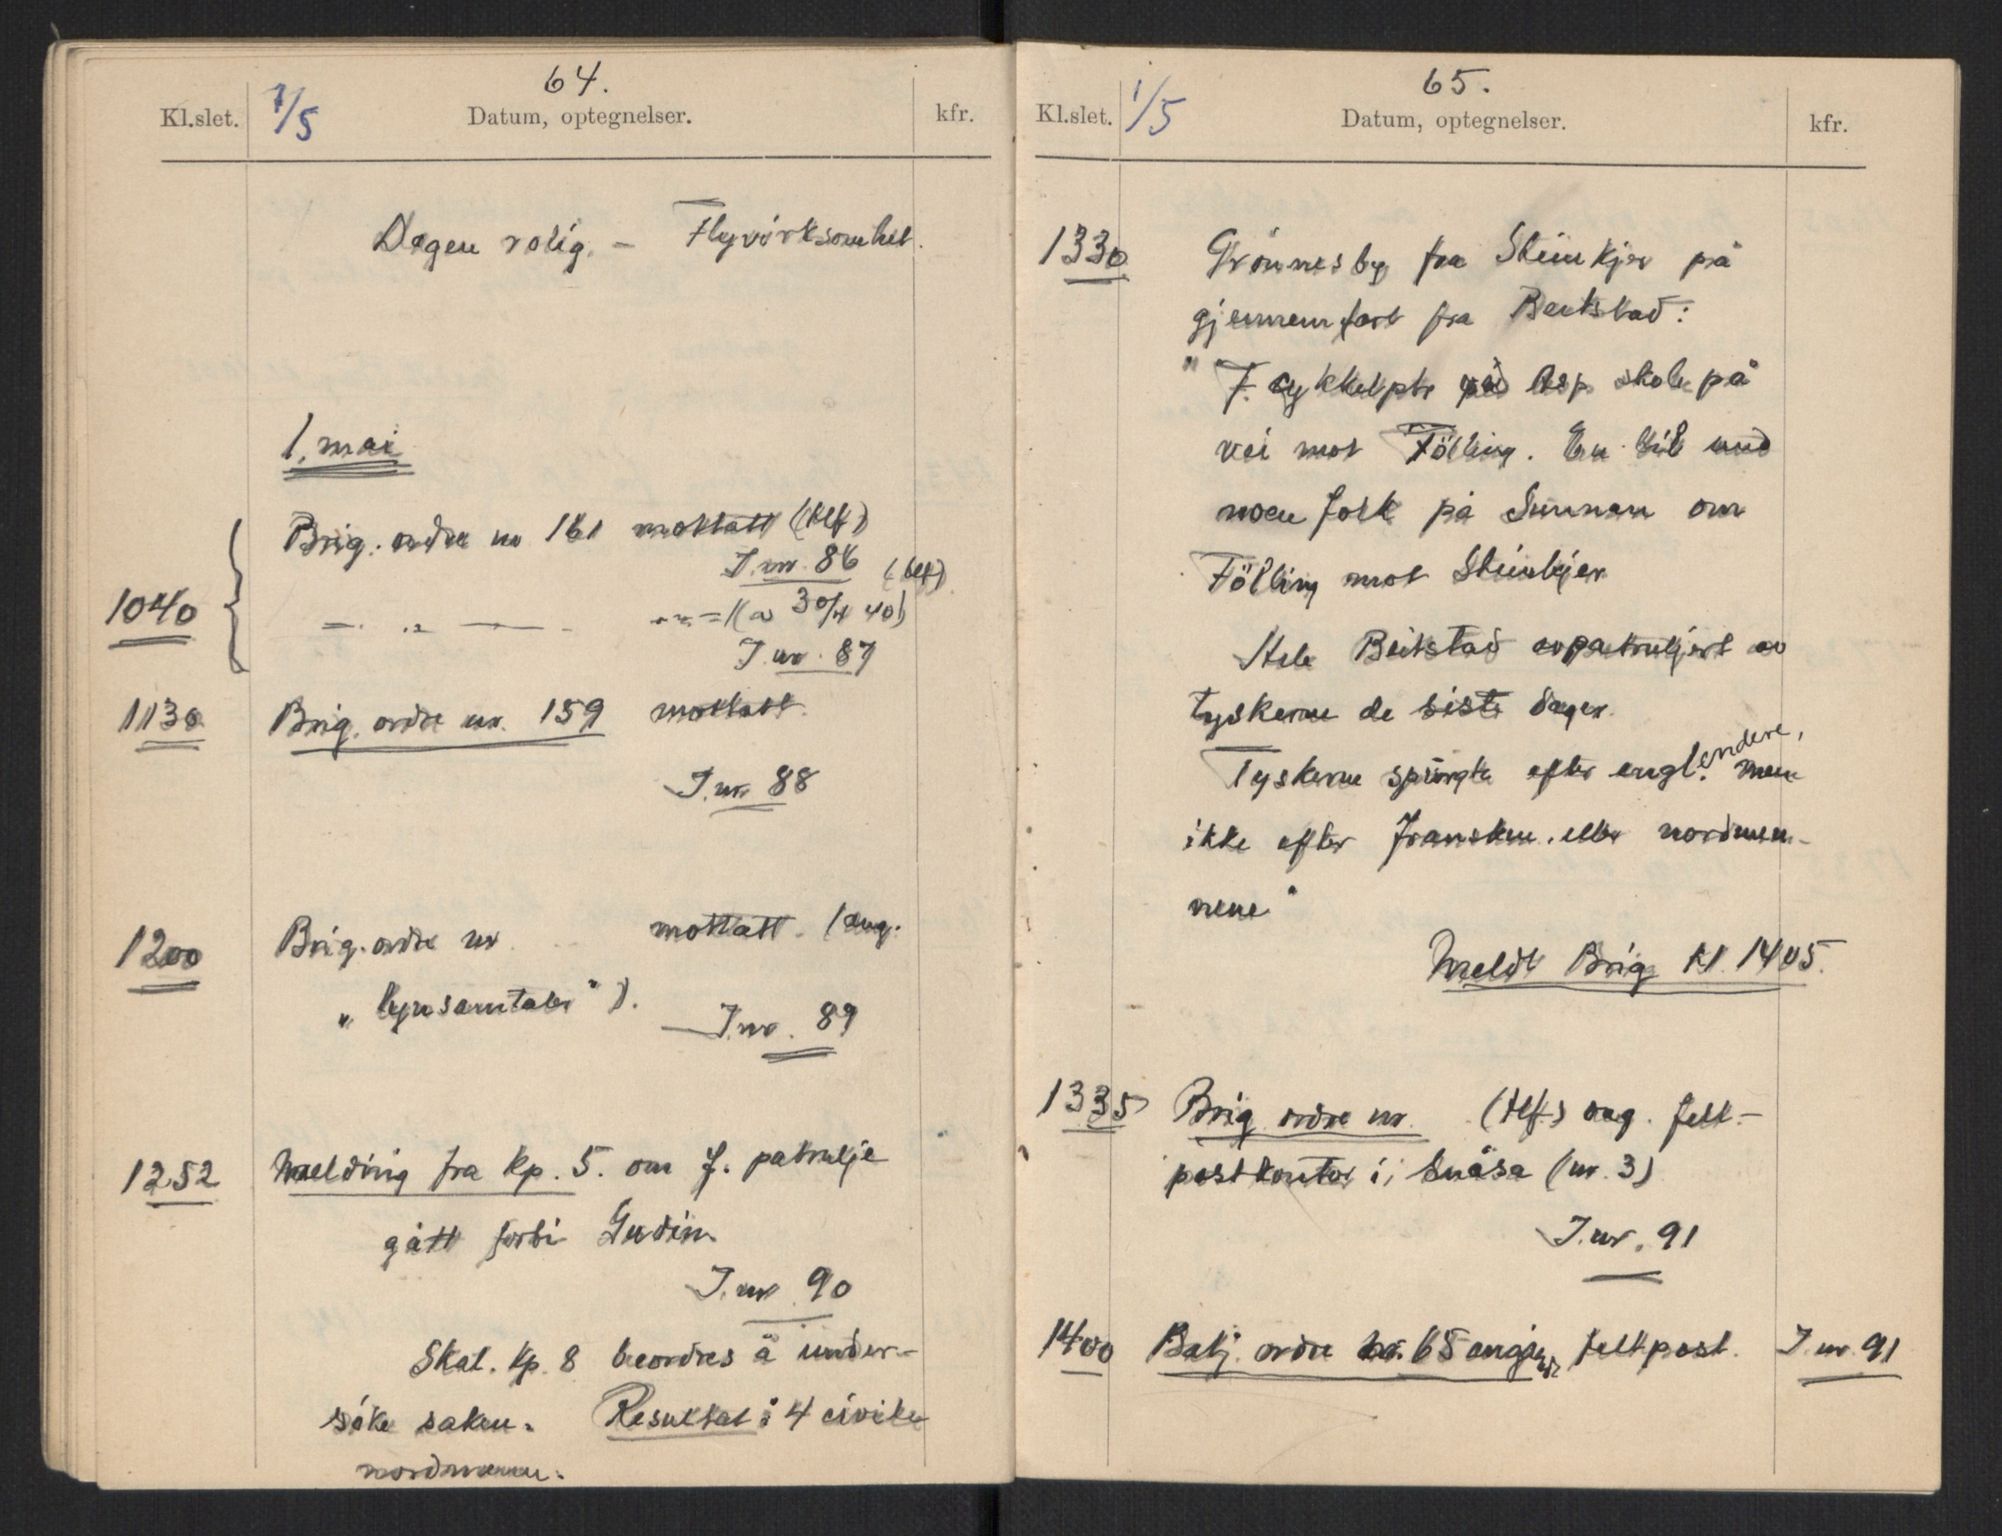 64.
Kl.slet. 1/5 Datum, optegnelser. kfr.
Dagen rolig. – Flyvirksomhet.
1. mai
Brig. ordre nr 161 mottatt (tlf)
J.nr. 86 (tlf)
1040 — „ — (av 30/4 40)
J.nr. 87
1130 Brig. ordre nr. 159 mottatt.
J.nr 88
1200 Brig. ordre nr mottatt. (ang.
„lynsamtaler").
J.nr. 89
1252 Melding fra Kp. 5. om f. patrulje
gått forbi Gudin.
J.nr 90
Skal. Kp. 8 beordres å under-
söke saken. Resultat: 4 civile
nordmenn.
65.
Kl.slet. 1/5 Datum, optegnelser. kfr.
1330 Grönnesby fra Steinkjer på
gjennemfart fra Beitstad:
"F. cykkelptr ved Asp skole på
vei mot Fölling. En bil med
noen folk på Sunnan om
Fölling mot Steinkjer
Hele Beitstad avpatruljert av
tyskerne de siste dager.
Tyskerne spurgte efter englendere, men
ikke efter franskm. eller nordmen-
nene"
Meldt Brig kl. 1405.
1335 Brig ordre nr. (tlf.) ang. felt-
postkontor i Snåsa (nr. 3)
J.nr. 91
1400 Batj. ordre nr. 65 angående feltpost. J.nr 91